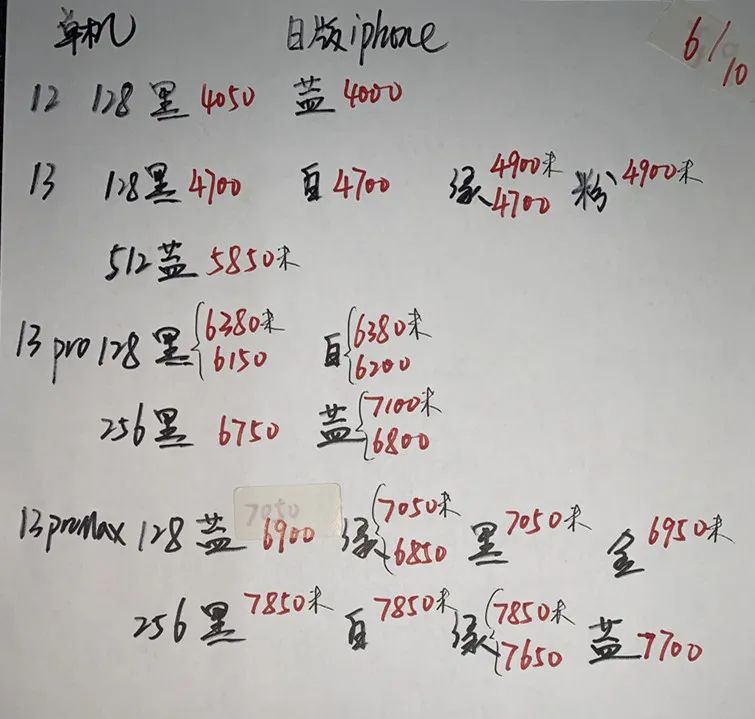 单机 日版iphone 6/10
12 128黑 4050 蓝 4000
13 128黑 4700 白 4700 绿 4900未 4700 粉 4900未
512蓝 5850未
13pro 128黑 6380未 6150 白 6380未 6200
256黑 6750 蓝 7100未 6800
13promax 128蓝 6900 绿 7050未 6850 黑 7050未 金 6950未
256黑 7850未 白 7850未 绿 7850未 7650 蓝 7700